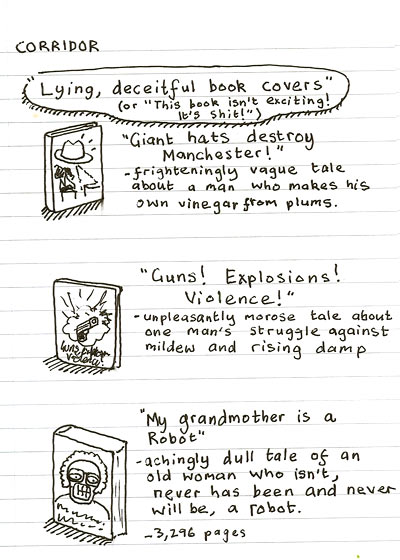 CORRIDOR
"Lying, deceitful book covers"
(or "This book isn't exciting!
It's shit!")
"Giant hats destroy
Manchester!"
- frighteningly vague tale
about a man who makes his
own vinegar from plums.
"Guns! Explosions!
Violence!"
- unpleasantly morose tale about
one man's struggle against
mildew and rising damp
Guns Explosions
Violence!
"My grandmother is a
Robot"
- achingly dull tale of an
old woman who isn't,
never has been and never
will be, a robot.
- 3,296 pages